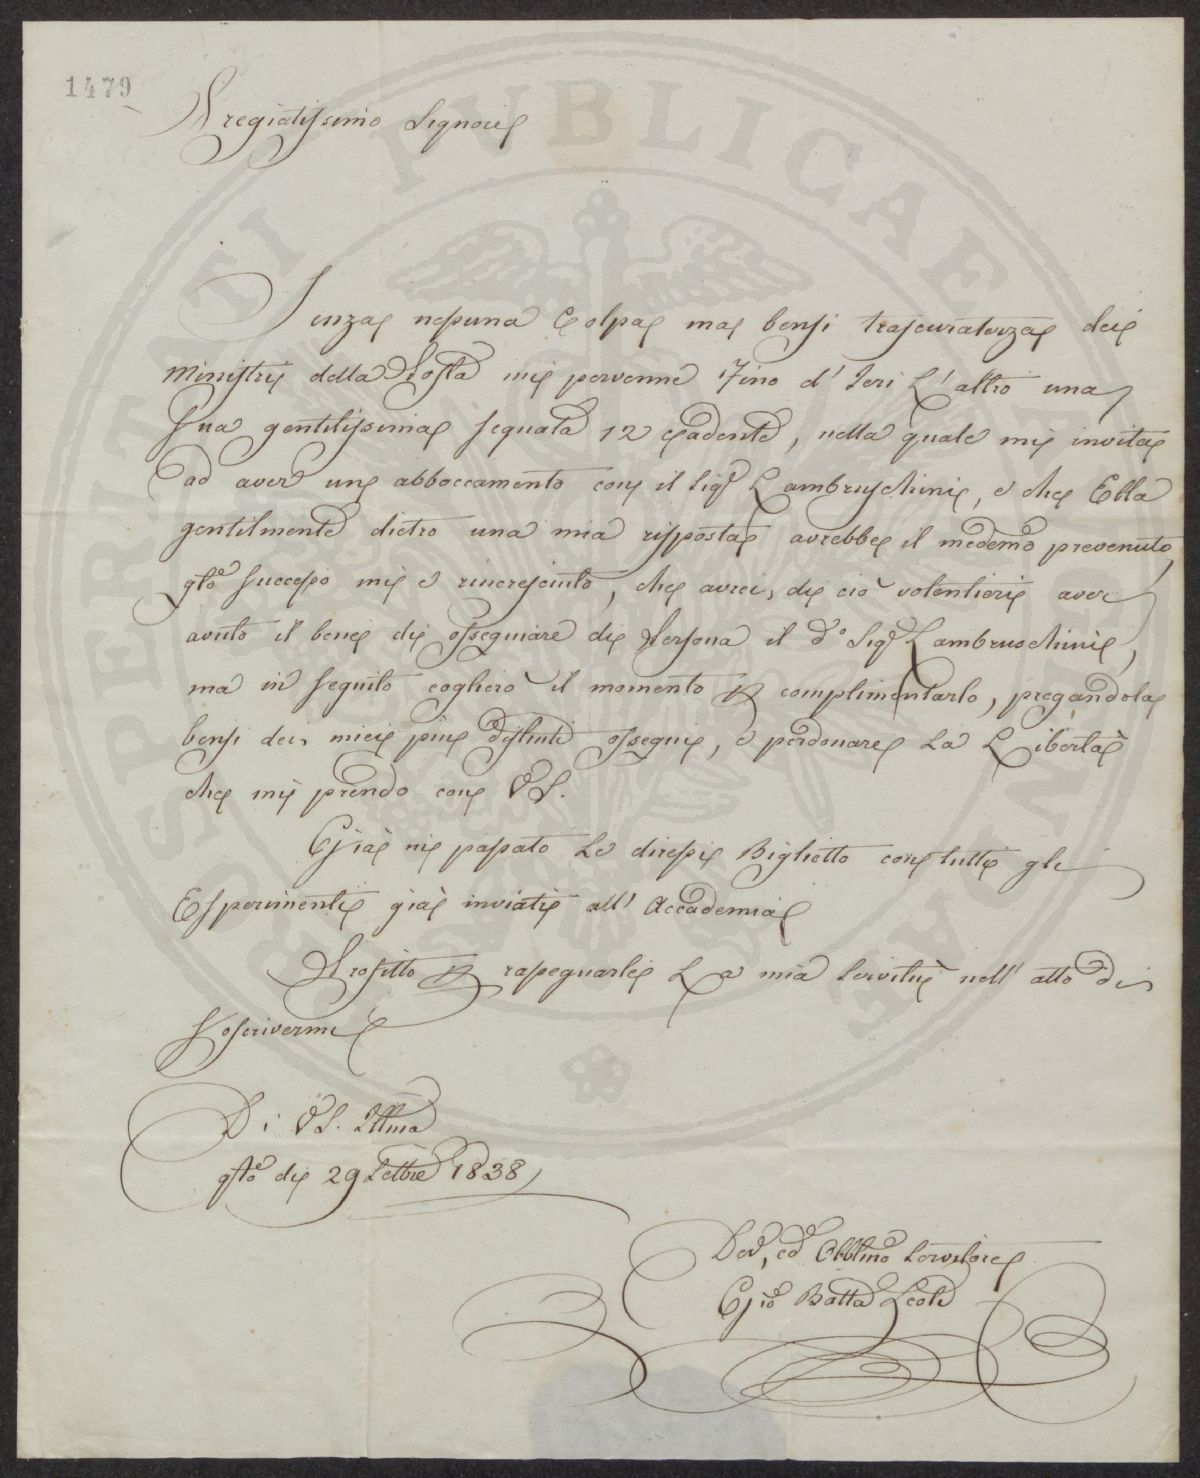 1479
Pregiatissimo Signore
Senza nessuna Colpa ma bensi trascuratezza dei
Ministri della Posta mi pervenne Fino d' Ieri L' altro una
Sua gentilissima segnata 12 cadente, nella quale mi invita
ad aver un abboccamento con il Sigr Lambruschini, e che Ella
gentilmente dietro una mia risposta avrebbe il medemo prevenuto,
qto successo mi è rincresciuto, che avrei di ciò volentieri aver
avuto il bene di ossequiare di Persona il do Sigr Lambruschini,
ma in seguito coglierò il momento p complimentarlo, pregandola
bensi dei miei più distinti ossequi, e perdonare La Libertà
che mi prendo con VS.
Già ni passato Le diressi Biglietto con tutti gli
Esperimenti già inviati all' Accademia
Profitto p rassegnarle La mia Servitù nell' atto di
Soscrivermi
Di VS. Illma
qsto di 29 Settbre 1838
Dev, ed Obblmo Servitore
Gio Batta
SPERITATI PVBLICAE